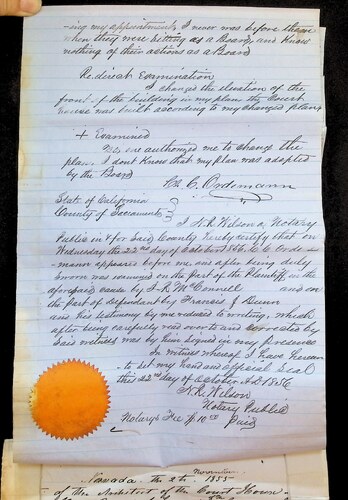 -ing my appointment, I never was before them
when they were sitting as a Board, and know
nothing of their actions as a Board
Redirect Examination
I changed the elevation of the
front of the building in my plans the Court
house was built according to my changed plans
X Examined
No one authorized me to change the
plan, I dont know that my plan was adopted
by the Board
C. Ordemann
State of California
County of Sacramento
I N. R. Wilson a Notary
Public in & for said County hereby certify that on
Wednesday the 22nd day of October 1856, C. Orde
mann appeared before me and after being duly
sworn was examined on the part of the Plaintiff in the
aforesaid cause by J. R. McConnell and on
the part of defendant by Francis J Dunn
and his testimony by me reduced to writing, which
after being carefully read over to and corrected by
said witness was by him signed in my presence
In witness whereof I have hereun
-to set my hand and official seal
this 22nd day of October A.D. 1856
N. R. Wilson
Notary Public
Notarys Fee $10 00 Paid
November
Nevada the 2th 1855
of the Architect of the Court House